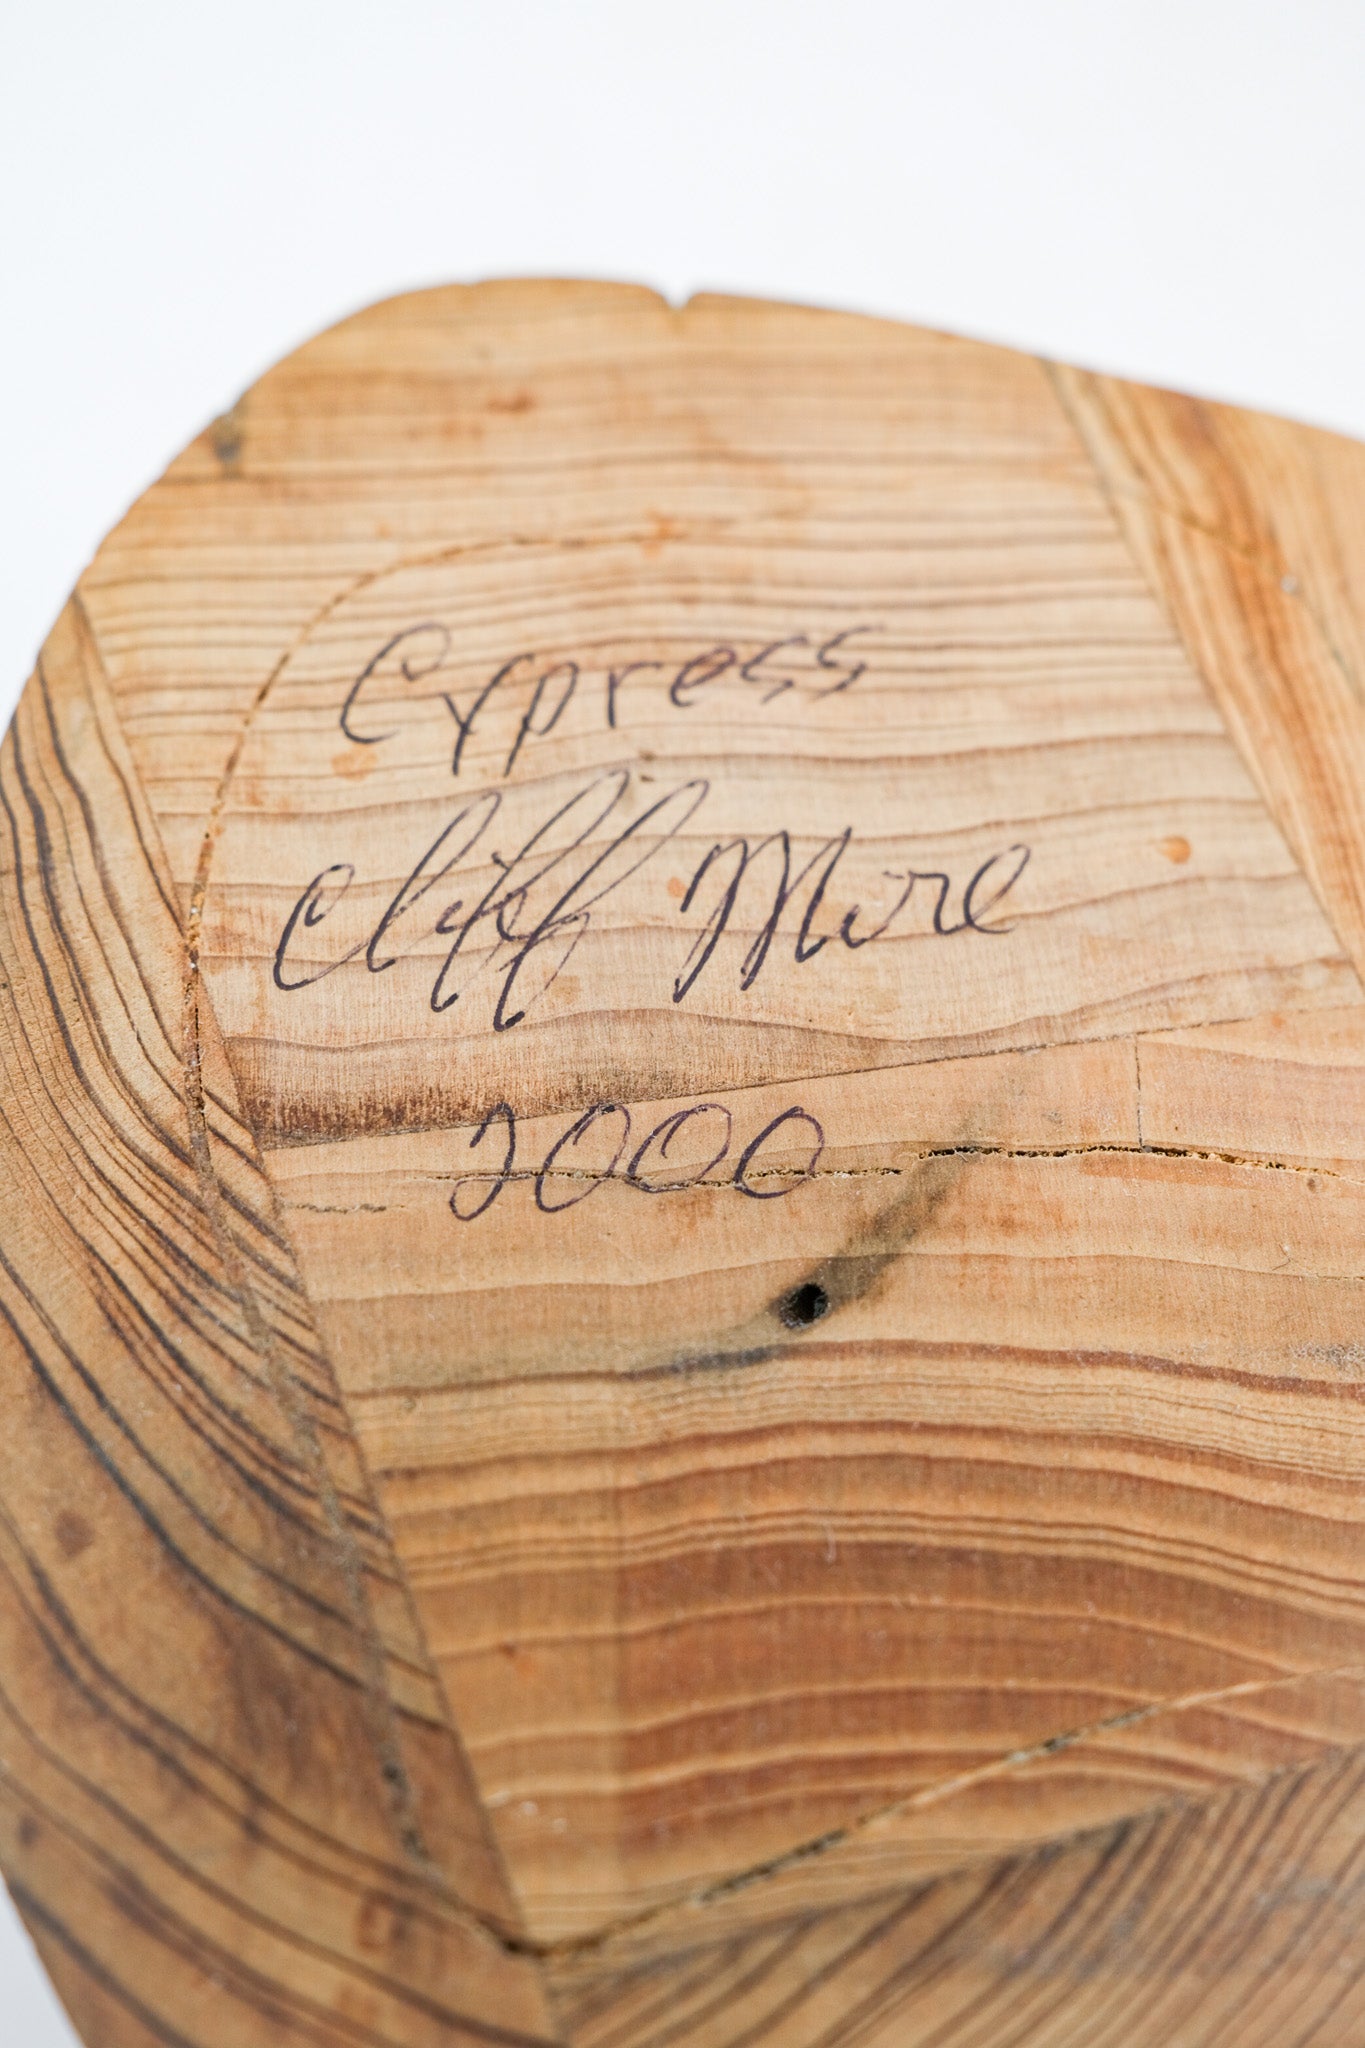 Cypress
Cliff More
2000